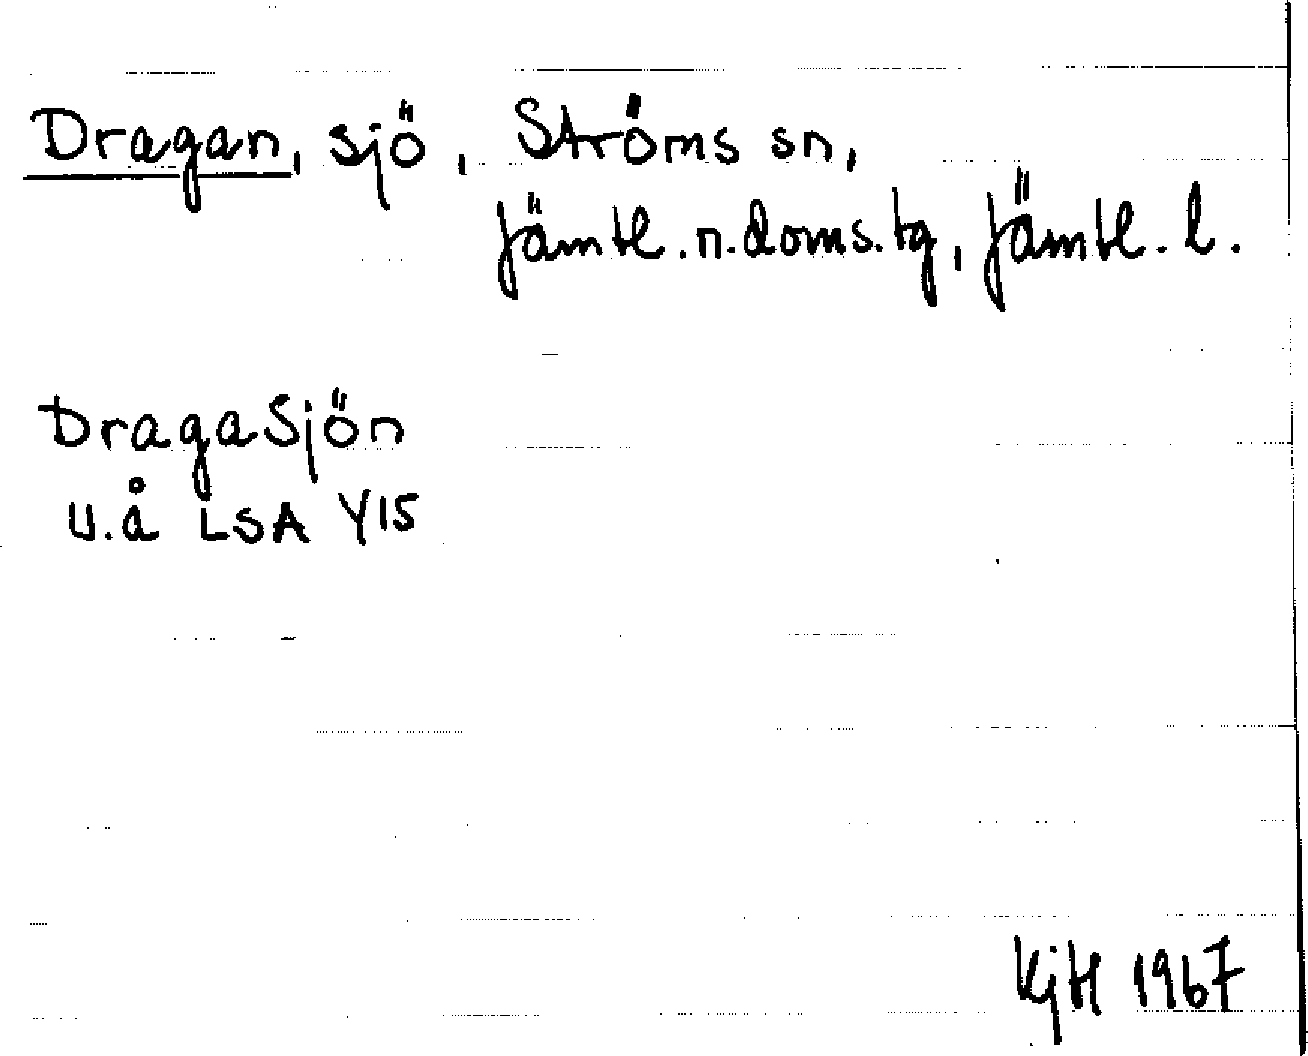 Dragan, sjö, Ströms sn,
Jämtl.n.doms.tg, Jämtl.l.
DragaSjön
U.å LSA Y15
KjH 1967